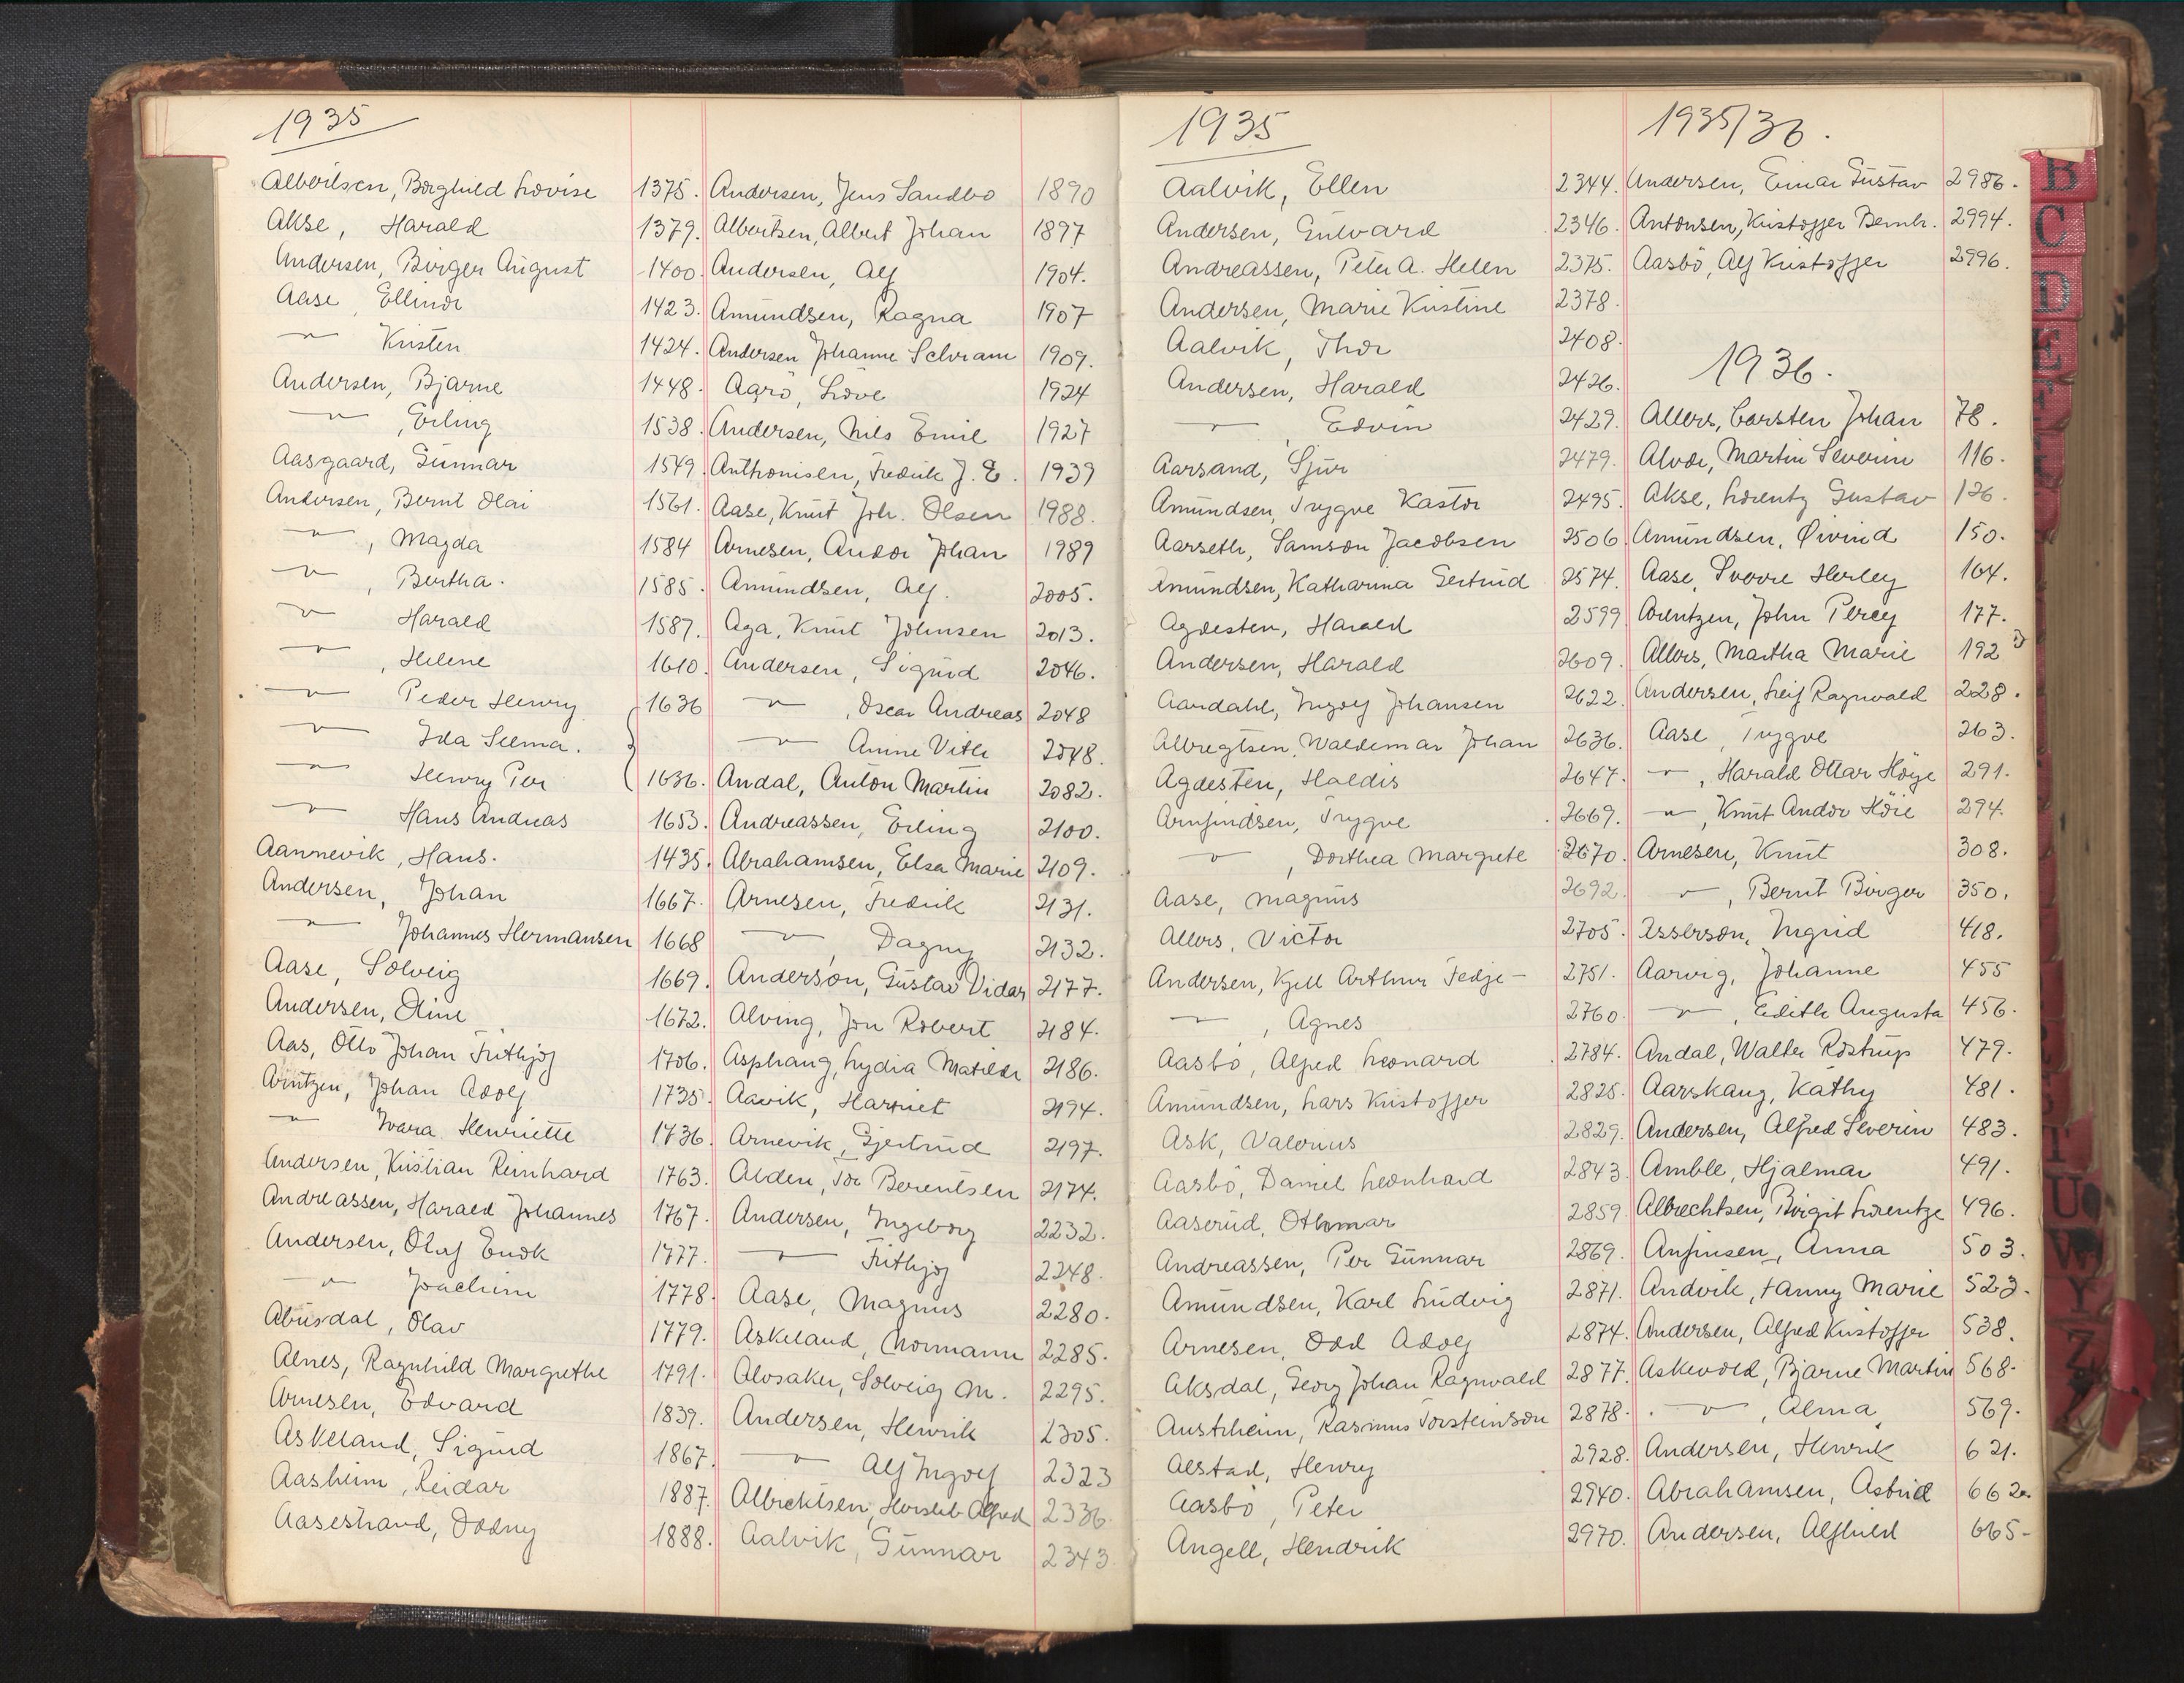 1935
Albertsen, Borghild Lovise 1375.
Akse, Harald 1379.
Andersen, Birger August 1400.
Aase, Ellinor 1423.
〃 Kristen 1424.
Andersen, Bjarne 1448.
〃 , Erling 1538.
Aasgaard, Gunnar 1549.
Andersen, Bernt Olai 1561.
〃 , Magda 1584
〃 , Bertha. 1585.
〃 Harald 1587.
〃 , Helene 1610.
〃 Peder Henry 1636
〃 Ida Selma.
〃 Henry Per 1636.
〃 Hans Andreas 1653.
Aannevik, Hans. 1435.
Andersen, Johan 1667.
〃 Johannes Hermansen 1668
Aase, Solveig 1669.
Andersen, Oline 1672.
Aas, Otto Johan Frithjof 1706.
Arntzen, Johan Adolf 1735.
〃 Ivara Henriette 1736.
Andersen, Kristian Reinhard 1763.
Andreassen, Harald Johannes 1767.
Andersen, Oluf Enok 1777.
〃 Joachim 1778.
Abusdal, Olav 1779.
Alnes, Ragnhild Margrethe 1791.
Arnesen, Edvard 1839.
Askeland, Sigurd 1867.
Aasheim, Reidar 1887.
Aasestrand, Oddny 1888.
Andersen, Jens Sandbo 1890
Albertsen, Albert Johan 1897
Andersen, Alf 1904.
Amundsen, Ragna 1907
Andersen Johanne Schram 1909.
Agrö, Love 1924
Andersen, Nils Emil 1927
Anthonisen, Fredrik J. E. 1939
Aase, Knut Joh. Olsen 1988.
Arnesen, Andor Johan 1989
Amundsen, Alf. 2005.
Aga, Knut Johnsen 2013.
Andersen, Sigurd 2046.
〃 , Oscar Andreas 2048
〃 Anine Vith 2048.
Andal, Anton Martin 2082.
Andreassen, Erling 2100.
Abrahamsen, Elsa Marie 2109.
Arnesen, Fredrik 2131.
〃 , Dagny 2132.
Anderson, Gustav Vidar 2177.
Alving, Jon Robert 2184.
Asphaug, Lydia Matilde 2186.
Aavik, Harriet 2194.
Arnevik, Gjertrud 2197.
Alden, Tor Berentsen 2174.
Andersen, Ingeborg 2232.
〃 Frithjof 2248.
Aase, Magnus 2280.
Askeland, Normann 2285.
Alvsaker, Solveig M. 2295.
Andersen, Henrik 2305.
〃 Alf Ingolf 2323
Albrektsen, Hersleb Alfred 2336.
Aalvik, Gunnar 2343
1935
Aalvik, Ellen 2344.
Andersen, Gulvard 2346.
Andreassen, Peter A. Helen 2375.
Andersen, Marie Kristine 2378.
Aalvik, Thor 2408.
Andersen, Harald 2426.
〃 , Edvin 2429.
Aarsand, Sjur 2479.
Amundsen, Trygve Kastor 2495.
Aarseth, Samson Jacobsen 2506.
Amundsen, Katharina Gertrud 2574.
Agdesten, Harald 2599
Andersen, Harald 2609.
Aardahl, Ingolf Johansen 2622.
Albregtsen, Waldemar Johan 2636.
Agdesten, Haldis 2647.
Arnfindsen, Trygve 2669.
〃 , Dorthea Margrete 2670.
Aase, Magnus 2692.
Allers, Victor 2705.
Andersen, Kjell Arthur Fedje- 2751.
〃 , Agnes 2760.
Aasbö, Alfred Leonard 2784.
Amundsen, Lars Kristoffer 2825.
Ask, Valerius 2829.
Aasbö, Daniel Leonhard 2843.
Aaserud, Othmar 2859.
Andreassen, Per Gunnar 2869.
Amundsen, Karl Ludvig 2871.
Arnesen, Odd Adolf 2874.
Aksdal, Georg Johan Ragnvald 2877.
Austrheim, Rasmus Torsteinson 2878.
Alstad, Henry 2928.
Aasbö, Peter 2940.
Angell, Hendrik 2970.
1935/36.
Andersen, Einar Gustav 2986.
Antonsen, Kristoffer Bernh. 2994.
Aasbö, Alf Kristoffer 2996.
1936.
Allers, Carsten Johan 78.
Alvær, Martin Severin 116.
Akse, Lorentz Gustav 126.
Amundsen, Øivind 150.
Aase, Sverre Herley 164.
Arentzen, John Percy 177.
Allers, Martha Marie 192
Andersen, Leif Ragnvald 228.
Aase, Trygve 263.
〃 , Harald Ottar Höye 291.
〃 , Knut Andor Höie 294.
Arnesen, Knut 308.
〃 , Bernt Birger 350.
Asserson, Ingrid 418.
Aarvig, Johanne 455
〃 , Edith Augusta 456.
Andal, Walter Rostrup 479.
Aarskaug, Käthy 481.
Andersen, Alfred Severin 483.
Amble, Hjalmar 491.
Albrechtsen, Birgit Lorentze 496.
Anfinsen, Anna 503.
Andvik, Fanny Marie 523.
Andersen, Alfred Kristoffer 538.
Askevold, Bjarne Martin 568.
〃 , Alma 569.
Andersen, Henrik 621.
Abrahamsen, Astrid 662.
Andersen, Alfhild 665-
B
C
D
E
F
T
U
W
Y
Z